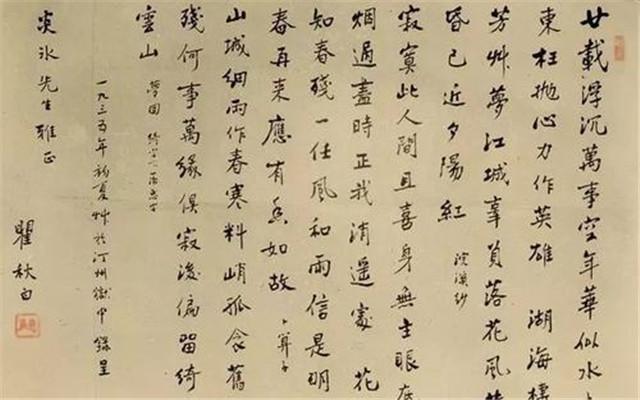 廿載浮沉萬事空年華似水
東枉拋心力作英雄 湖海棲
芳艸夢江城辜負落花風
昏已近夕陽紅 浣溪紗
寂寞此人間且喜身無主眼底
烟過盡時正我消遥處 花
知春殘一任風和雨信是明
春再來應有香如故 卜算子
山城細雨作春寒料峭孤衾舊
殘何事萬緣俱寂後偏留綺
雲山 夢回
一九三五年初夏艸於汀州獄中錄呈
炎冰先生雅正
瞿秋白